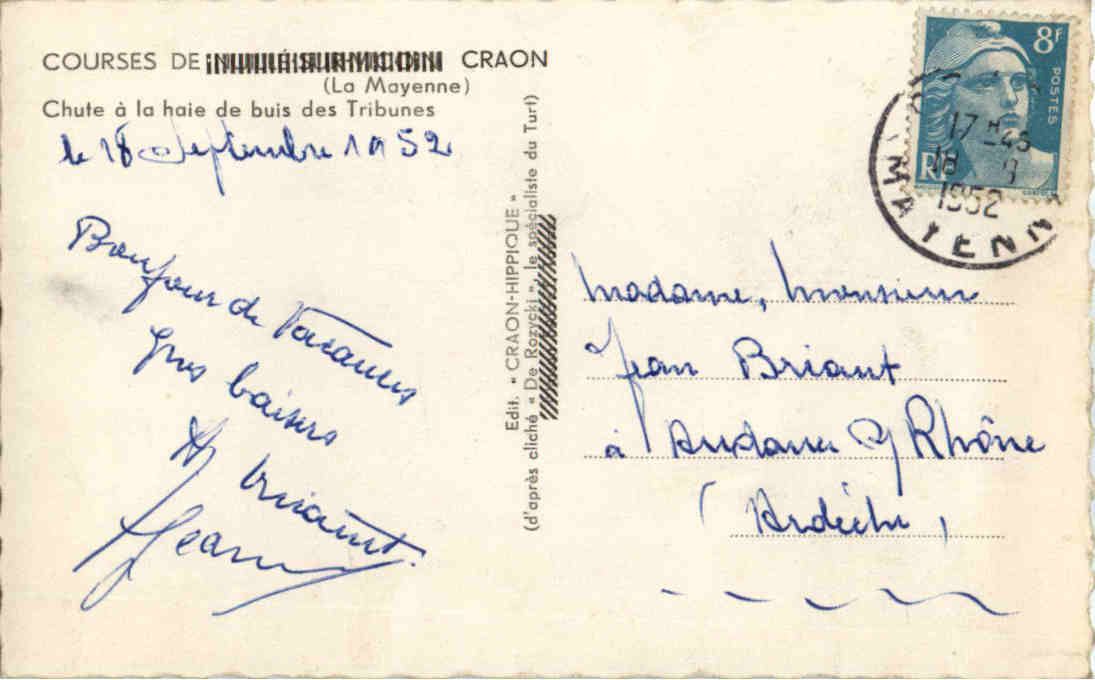 COURSES DE CRAON
(La Mayenne)
Chute à la haie de buis des Tribunes
le 18 Septembre 1952
Bonjour de Vacances
gros baisers
briant
Jean
Edit. « CRAON-HIPPIQUE »
(d'après cliché « De Rozycki », le spécialiste du Turf)
8F
POSTES
RF
17 H 45
18 9
1952
MAYENN
Madame, Monsieur
Jean Briant
à Andance s/ Rhône
(Ardèche)